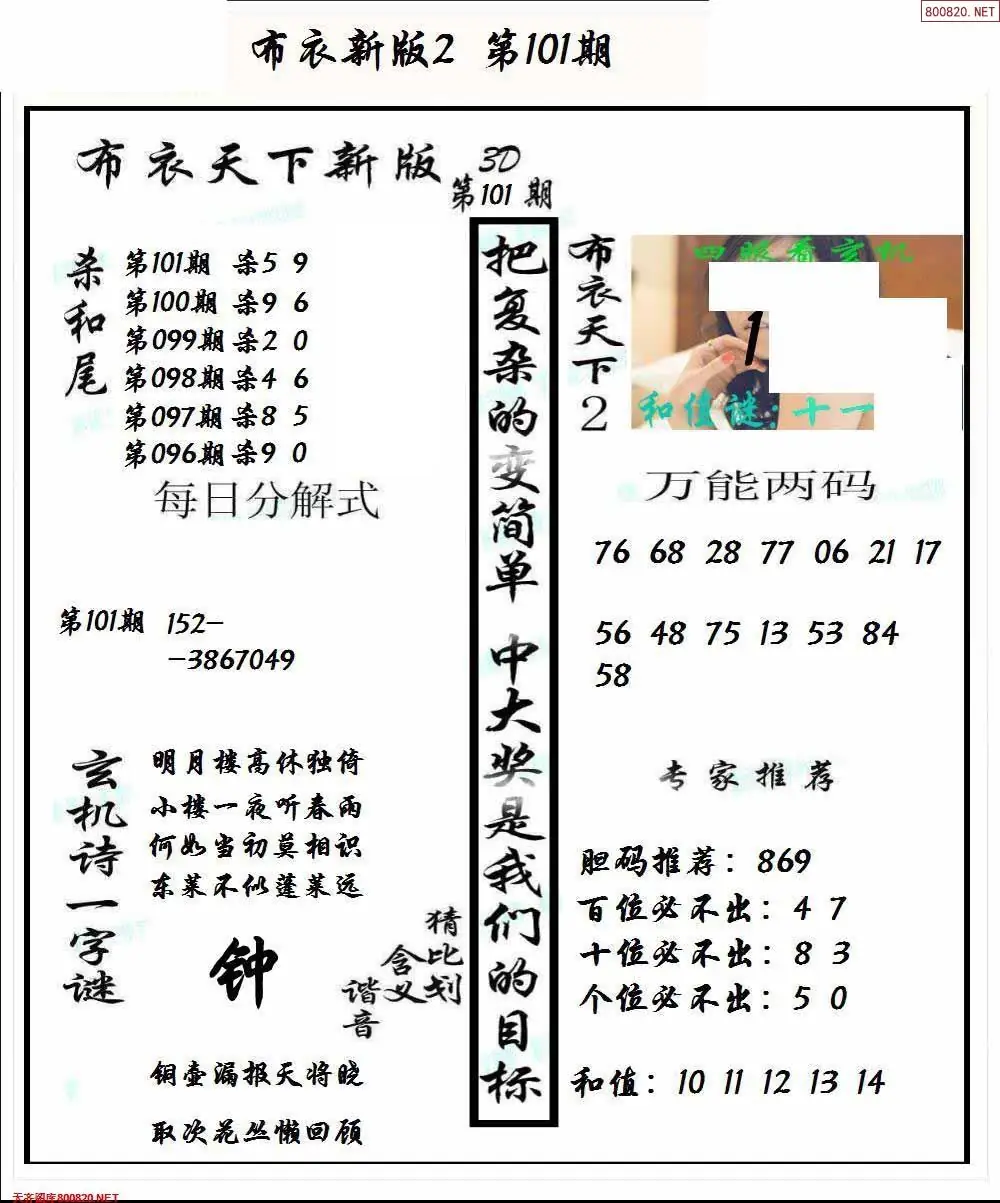 800820.NET
布衣新版2 第101期
布衣天下新版
3D
第101期
杀和尾
第101期 杀5 9
第100期 杀9 6
第099期 杀2 0
第098期 杀4 6
第097期 杀8 5
第096期 杀9 0
每日分解式
第101期 152-
-3867049
玄机诗一字谜
明月楼高休独倚
小楼一夜听春雨
何如当初莫相识
东莱不似蓬莱远
钟
猜比划
含义
谐音
铜壶漏报天将晓
取次花丛懒回顾
把复杂的变简单 中大奖是我们的目标
布衣天下2
四眼看玄机
1
和值谜:十一
万能两码
76 68 28 77 06 21 17
56 48 75 13 53 84
58
专家推荐
胆码推荐：869
百位必不出：4 7
十位必不出：8 3
个位必不出：5 0
和值：10 11 12 13 14
天齐图库800820.NET